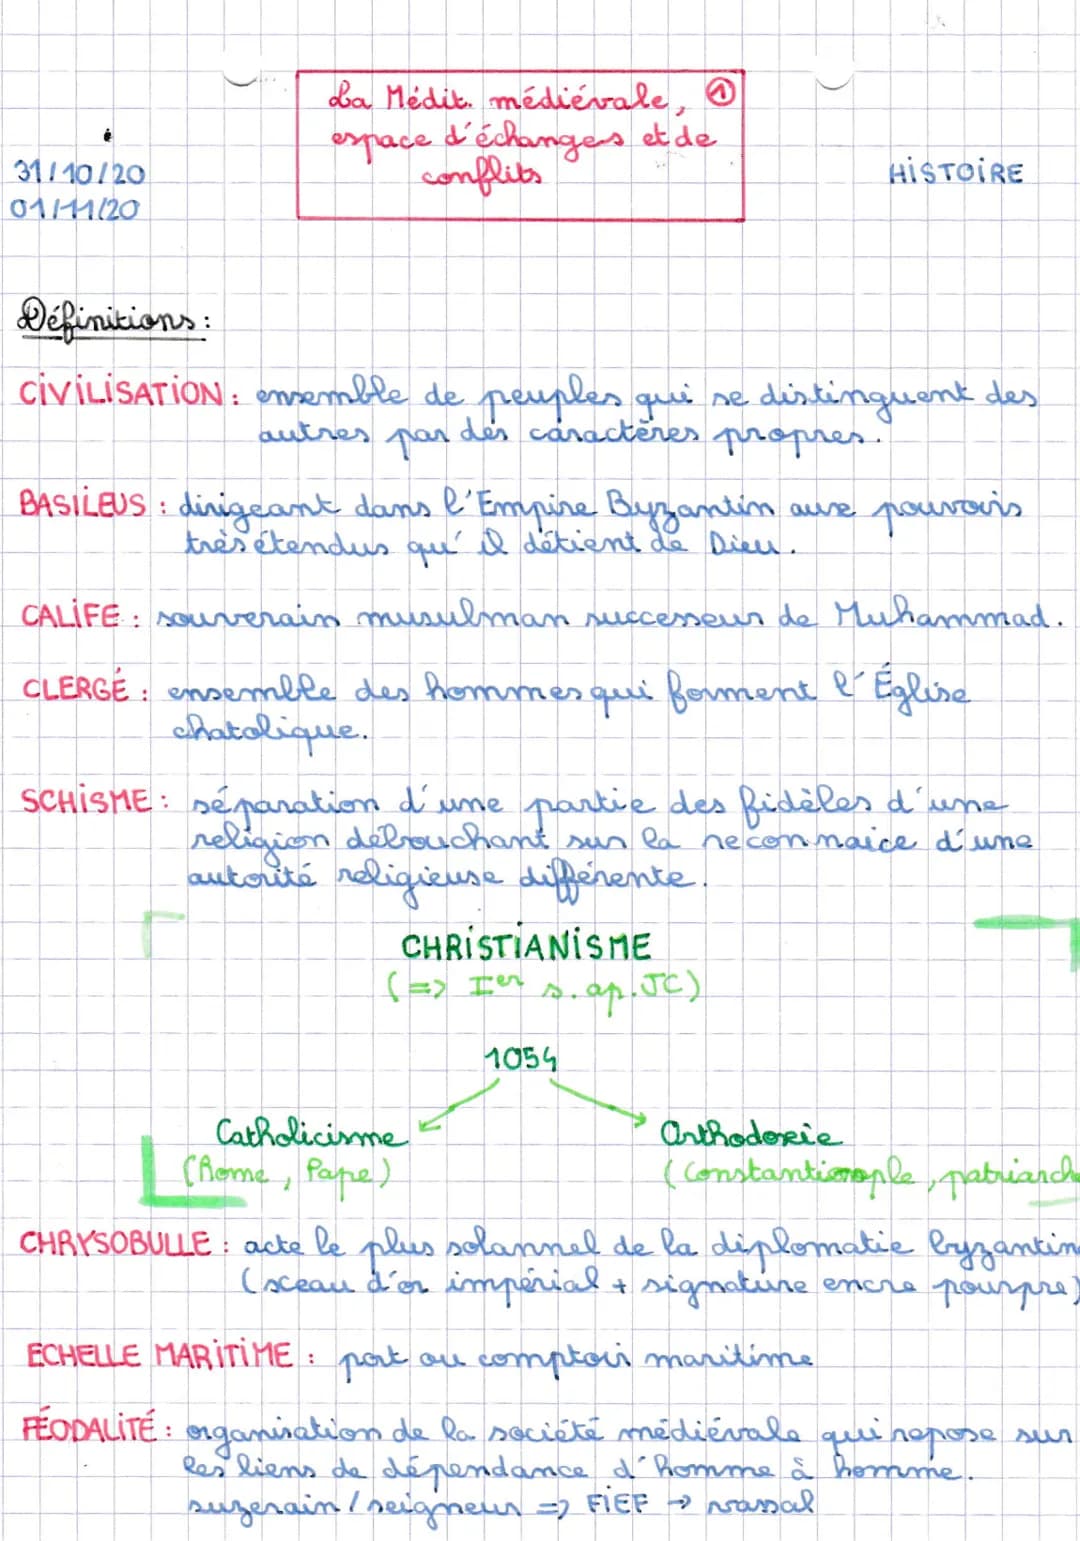 La Médit. médiévale, ①
espace d'échanges et de
conflits
31/10/20
01/11/20
HISTOIRE
Définitions :
CIVILISATION : ensemble de peuples qui se distinguent des
autres par des caractères propres.
BASILEUS : dirigeant dans l'Empire Byzantin aux pouvoirs
très étendus qu'il détient de Dieu.
CALIFE : souverain musulman successeur de Muhammad.
CLERGÉ : ensemble des hommes qui forment l'Église
chatolique.
SCHISME : séparation d'une partie des fidèles d'une
religion débouchant sur la reconnaice d'une
autorité religieuse différente.
CHRISTIANISME
(=> Ier s. ap. JC)
1054
Catholicisme
Orthodoxie
(Rome, Pape)
(Constantinople, patriarche
CHRYSOBULLE : acte le plus solannel de la diplomatie byzantine
(sceau d'or impérial + signature encre pourpre)
ECHELLE MARITIME : port ou comptoir maritime
FÉODALITÉ : organisation de la société médiévale qui repose sur
les liens de dépendance d'homme à homme.
suzerain / seigneur => FIEF → vassal